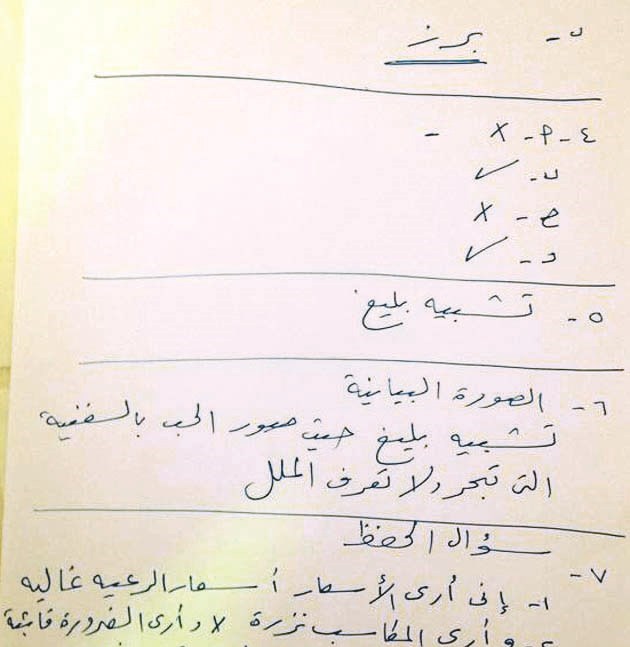 ب - برز
٤ - أ - X -
ب - ✓
ج - X
د - ✓
٥ - تشبيه بليغ
٦ - الصورة البيانية
تشبيه بليغ حيث صور الحب بالسفينة
التى تبحر ولا تعرف الملل
سؤال الحفظ
٧ -
١ - إنى أرى الأسعار أسعار الرعيه غاليه
٢ - وأرى المكاسب نزرة وأرى الضرورة